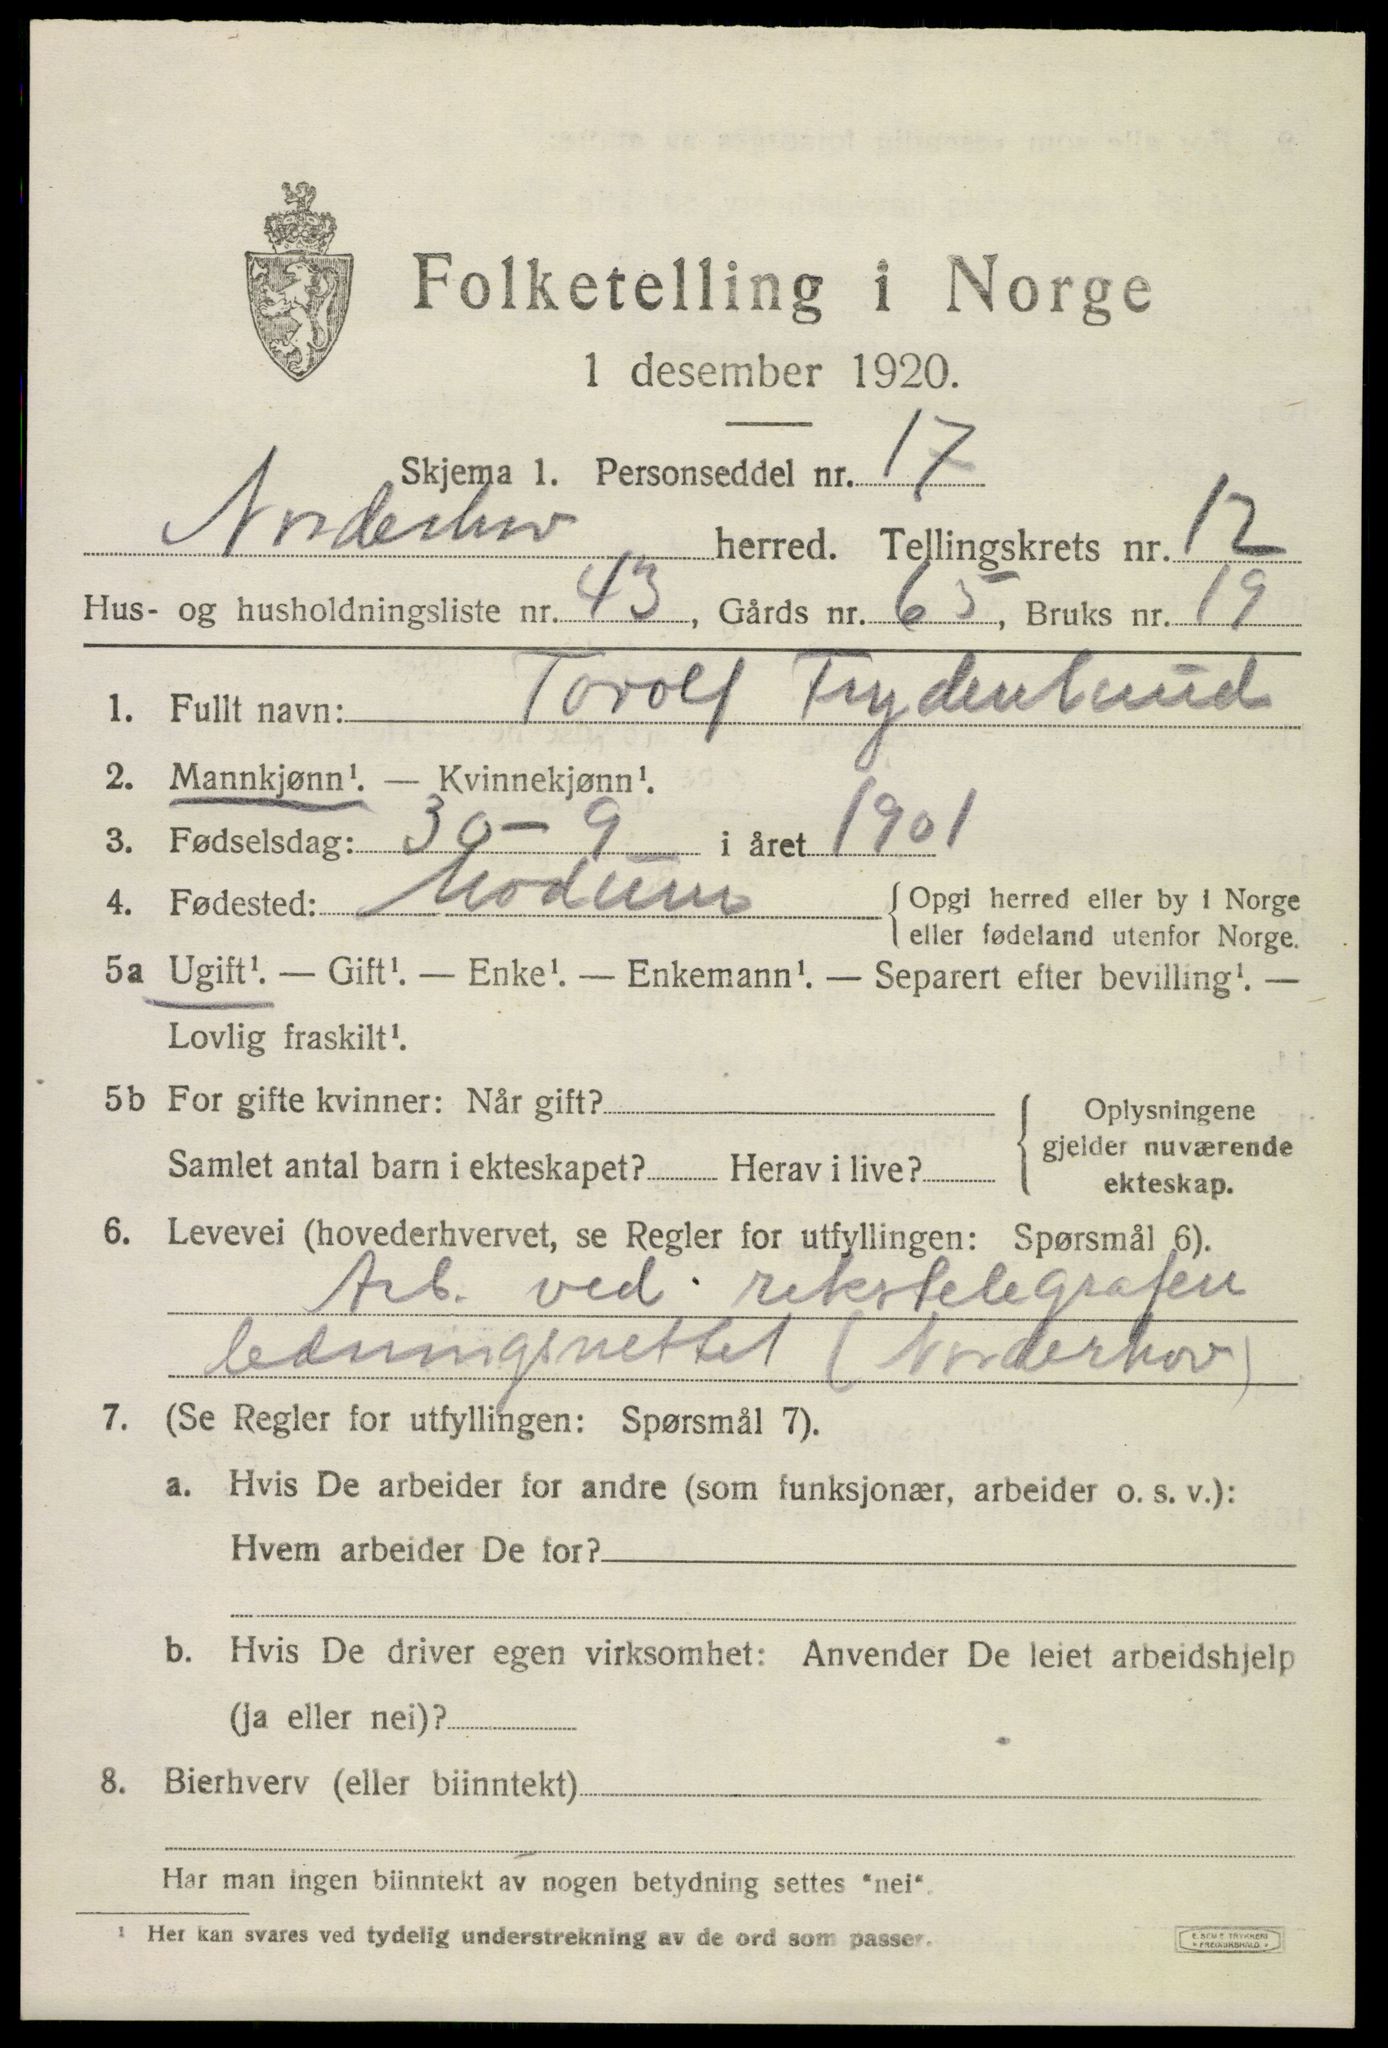 Folketelling i Norge
1 desember 1920.
Skjema 1. Personseddel nr. 17
Norderhov herred. Tellingskrets nr. 12
Hus- og husholdningsliste nr. 43, Gårds nr. 65, Bruks nr. 19
1. Fullt navn: Torolf Frydenlund
2. Mannkjønn¹. — Kvinnekjønn¹.
3. Fødselsdag: 30 - 9 i året 1901
4. Fødested: Modum { Opgi herred eller by i Norge
eller fødeland utenfor Norge.
5a Ugift¹. — Gift¹. — Enke¹. — Enkemann¹. — Separert efter bevilling¹. —
Lovlig fraskilt¹.
5b For gifte kvinner: Når gift?
Samlet antal barn i ekteskapet? Herav i live?
{ Oplysningene
gjelder nuværende
ekteskap.
6. Levevei (hovederhvervet, se Regler for utfyllingen: Spørsmål 6).
Arb. ved rikstelegrafen
ledningsnettet (Norderhov)
7. (Se Regler for utfyllingen: Spørsmål 7).
a. Hvis De arbeider for andre (som funksjonær, arbeider o. s. v.):
Hvem arbeider De for?
b. Hvis De driver egen virksomhet: Anvender De leiet arbeidshjelp
(ja eller nei)?
8. Bierhverv (eller biinntekt)
Har man ingen biinntekt av nogen betydning settes "nei".
¹ Her kan svares ved tydelig understrekning av de ord som passer.
E. SEM'S TRYKKERI
FREDRIKSHALD